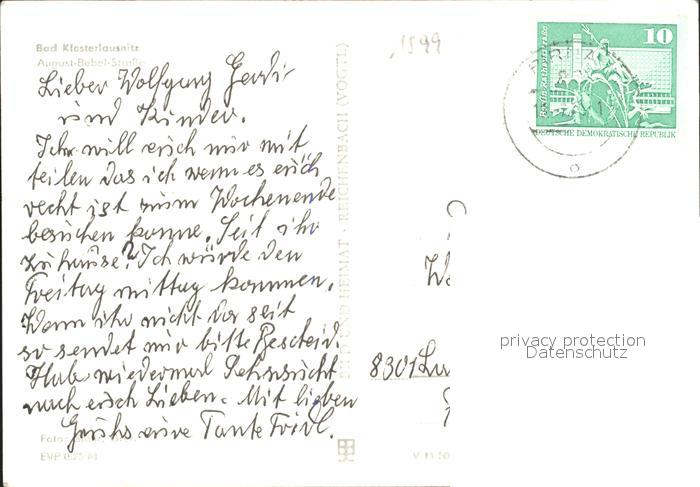 Bad Klosterlausnitz
August-Bebel-Straße
Lieber Wolfgang Gerdi
und Kinder.
Ich will euch nur mit
teilen das ich wenn es euch
recht ist zum Wochenende
besuchen komme. Seit ihr
zuhause? Ich würde den
Freitag mittag kommen.
Wenn ihr nicht da seit
so sendet mir bitte Bescheid.
Habe wiedermal Sehnsucht
nach euch Lieben. Mit lieben
Grüßs eure Tante Fridl.
Foto:
EVP 0,25 M
V 11 50
BILD UND HEIMAT · REICHENBACH (VOGTL)
1599
10
DEUTSCHE DEMOKRATISCHE REPUBLIK
8301
privacy protection
Datenschutz